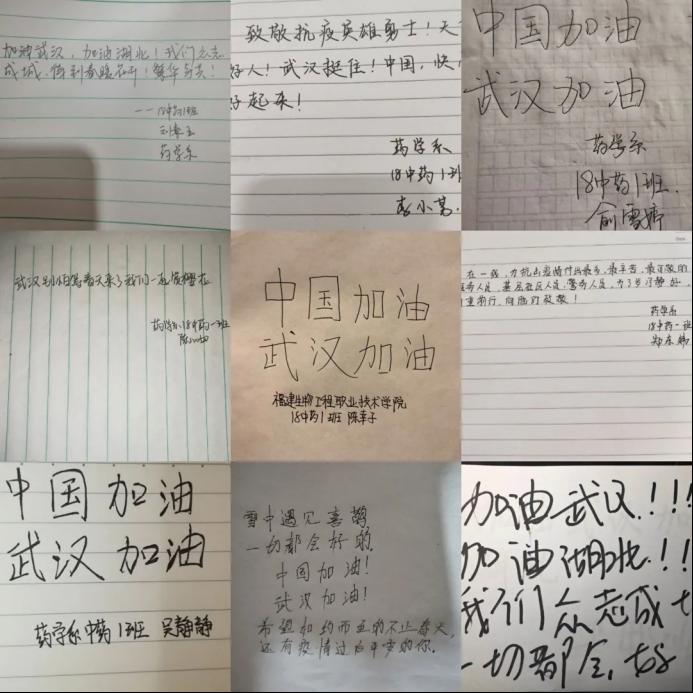 加油武汉，加油湖北！我们众志
成城，待到春暖花开！繁华与共！
——18中药1班
药学系
致敬抗疫英雄勇士！天
好人！武汉挺住！中国，快
好起来！
药学系
18中药1班
李小莺.
中国加油
武汉加油
药学系
18中药1班.
俞雪婷
武汉别怕春天来了我们一起赏樱花
药学系18中药一班
中国加油
武汉加油
福建生物工程职业技术学院
18中药1班 陈幸子
在一线，为抗击疫情付出最多、最辛苦、最可敬的
医务人员，基层社区人员，警务人员，为了岁月静好，
重前行，向他们致敬！
药学系
18中药一班
中国加油
武汉加油
药学系中药1班 吴静静
雪中遇见喜鹊
一切都会好的.
中国加油！
武汉加油！
希望如约而至的不止春天，
还有疫情过后平安的你.
加油武汉.!!!
加油湖北.!!
我们众志成
一切都会.好